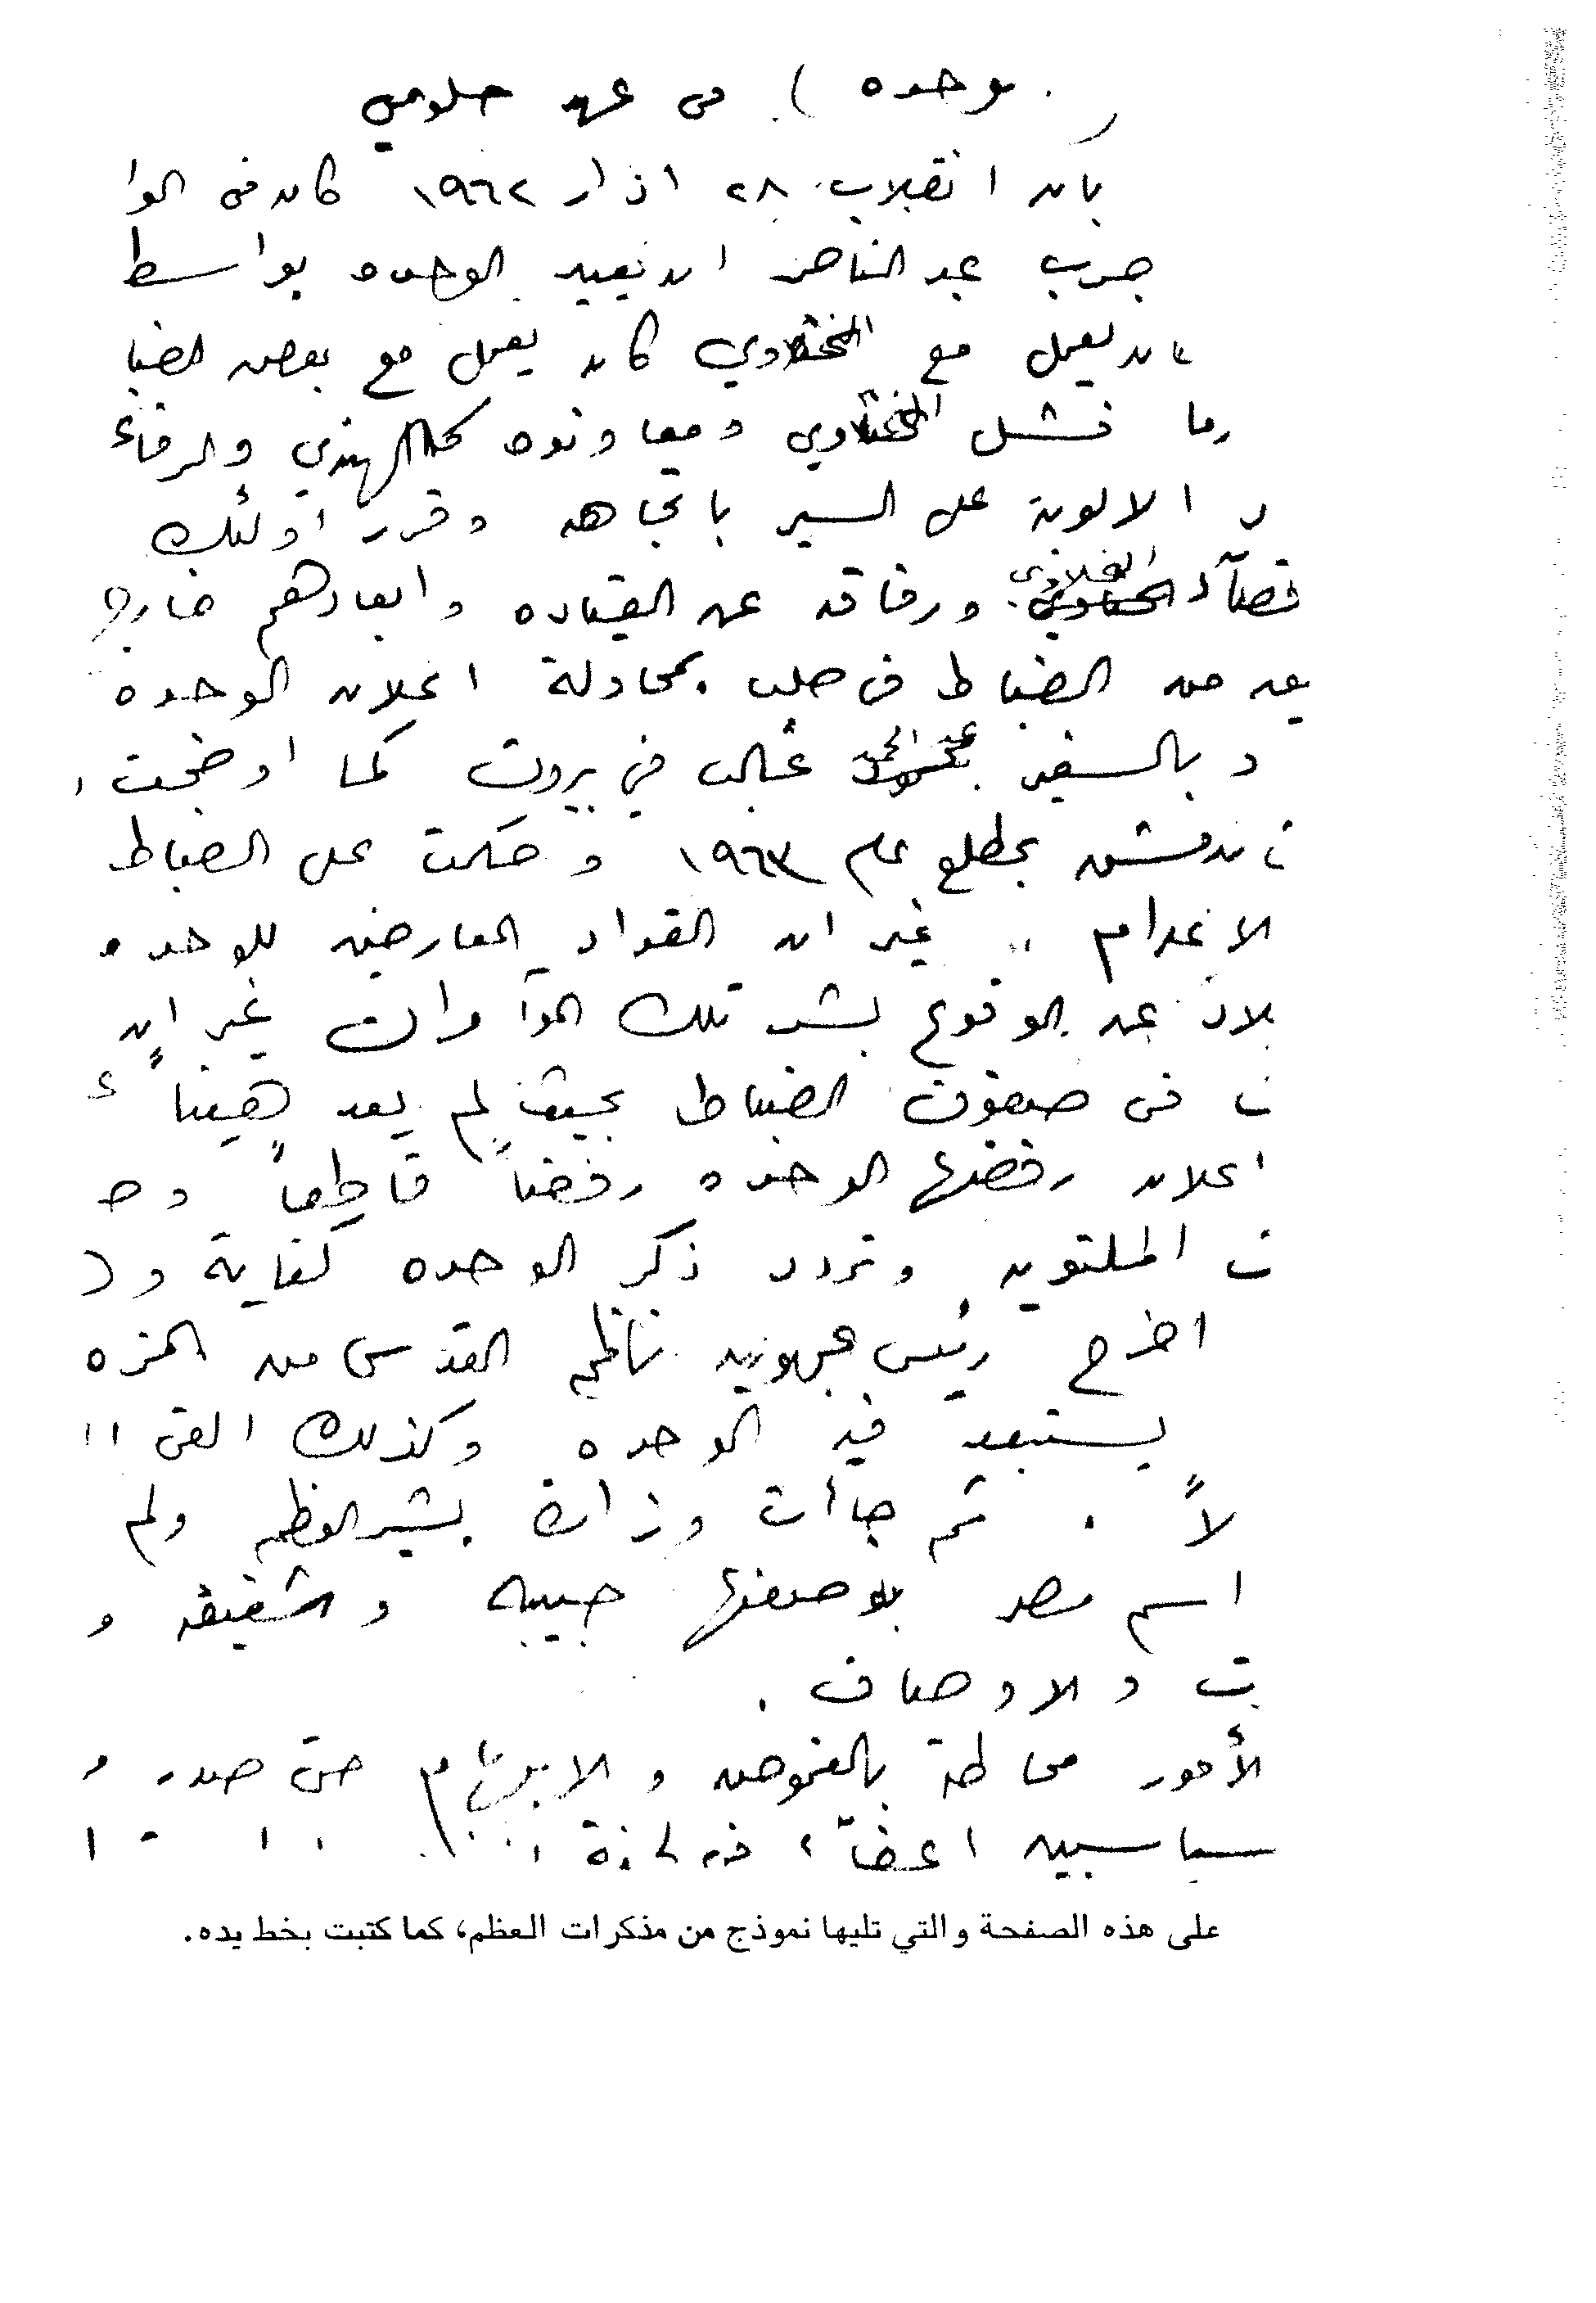 وحده ) في عهد حكومتي
بان انقلاب ٢٨ اذار ١٩٦٢ كان في الوا
جرب عبد الناصر ان يعيد الوحده بواسط
ان يعمل مع النحلاوي كان يعمل مع بعض الضبا
فشل النحلاوي ومعاونوه كالهندي والرفاء
الالوية على السير باتجاهه وقرر اولئك
اقصاء النحلاوي ورفاقه عن القياده وابعادهم خارج
من الضباط في حلب بمحاولة اعلان الوحده
بالسفير عبد الحميد غالب في بيروت كما اوضحت
دمشق بمطلع عام ١٩٦٣ وحكمت على الضباط
الاعدام .. غير ان القواد المعارضين للوحده
بلاد عن الوقوع بشر تلك المؤامرات غير ان
ت في صفوف الضباط بحيث لم يعد هيناً
اعلان رفضها الوحده رفضاً قاطعاً و
ت الملتوية وتردد ذكر الوحده كغاية و
اخرج رئيس جمهوريه ناظم القدسي من المزه
يستبعد فيه الوحده وكذلك القى
لاً . ثم جاأت وزارة بشير العظمه ولم
اسم مصر بوصفها حبيبه وشقيقه و
ت والاوصاف .
الأمور محاطة بالغموض والابهام حتى صدر
سياسيين اعضاء
على هذه الصفحة والتي تليها نموذج من مذكرات العظم، كما كتبت بخط يده.